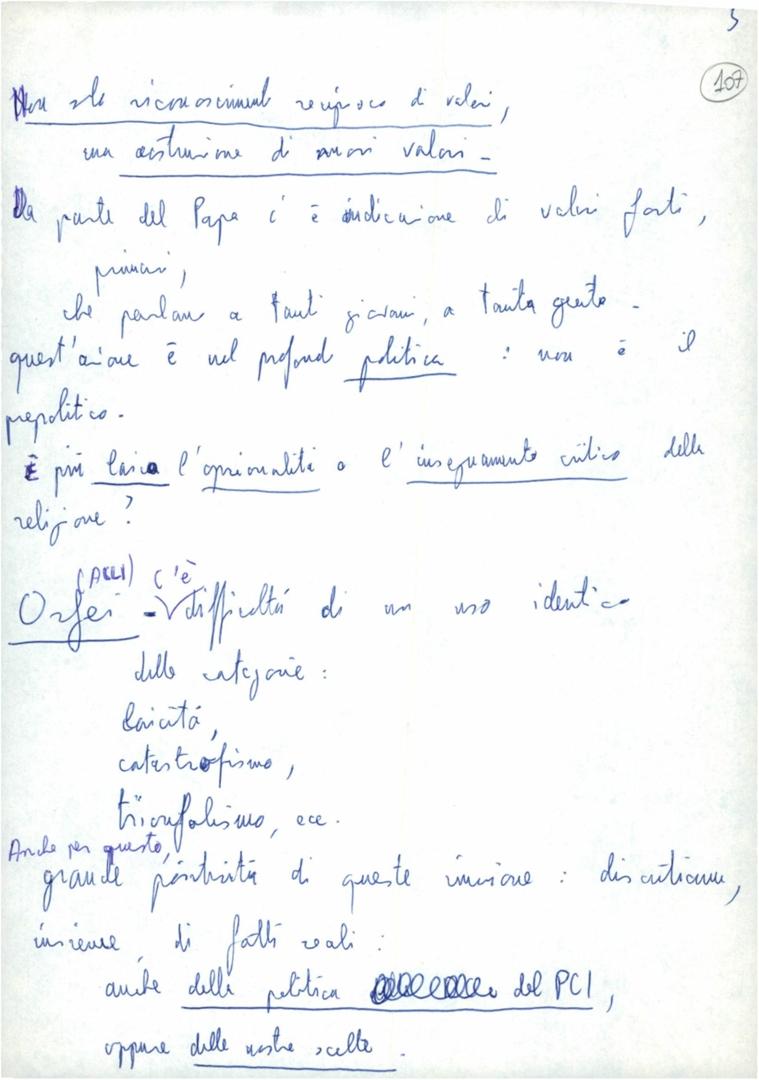 5
107
Non solo riconoscimento reciproco di valori,
ma costruzione di nuovi valori -
Da parte del Papa c'è indicazione di valori forti,
primari,
che parlano a tanti giovani, a tanta gente -
quest'azione è nel profondo politica : non è il
prepolitico -
È più laica l'opzionalità o l'inseguamento critico della
religione ?
(ACLI) c'è
Orfei - difficoltà di un uso identico
delle categorie :
laicità,
catastrofismo,
trionfalismo, ecc.
Anche per questo,
grande positività di queste riunione : discutiamo,
insieme, di fatti reali :
anche della politica del PCI,
oppure delle nostre scelte.